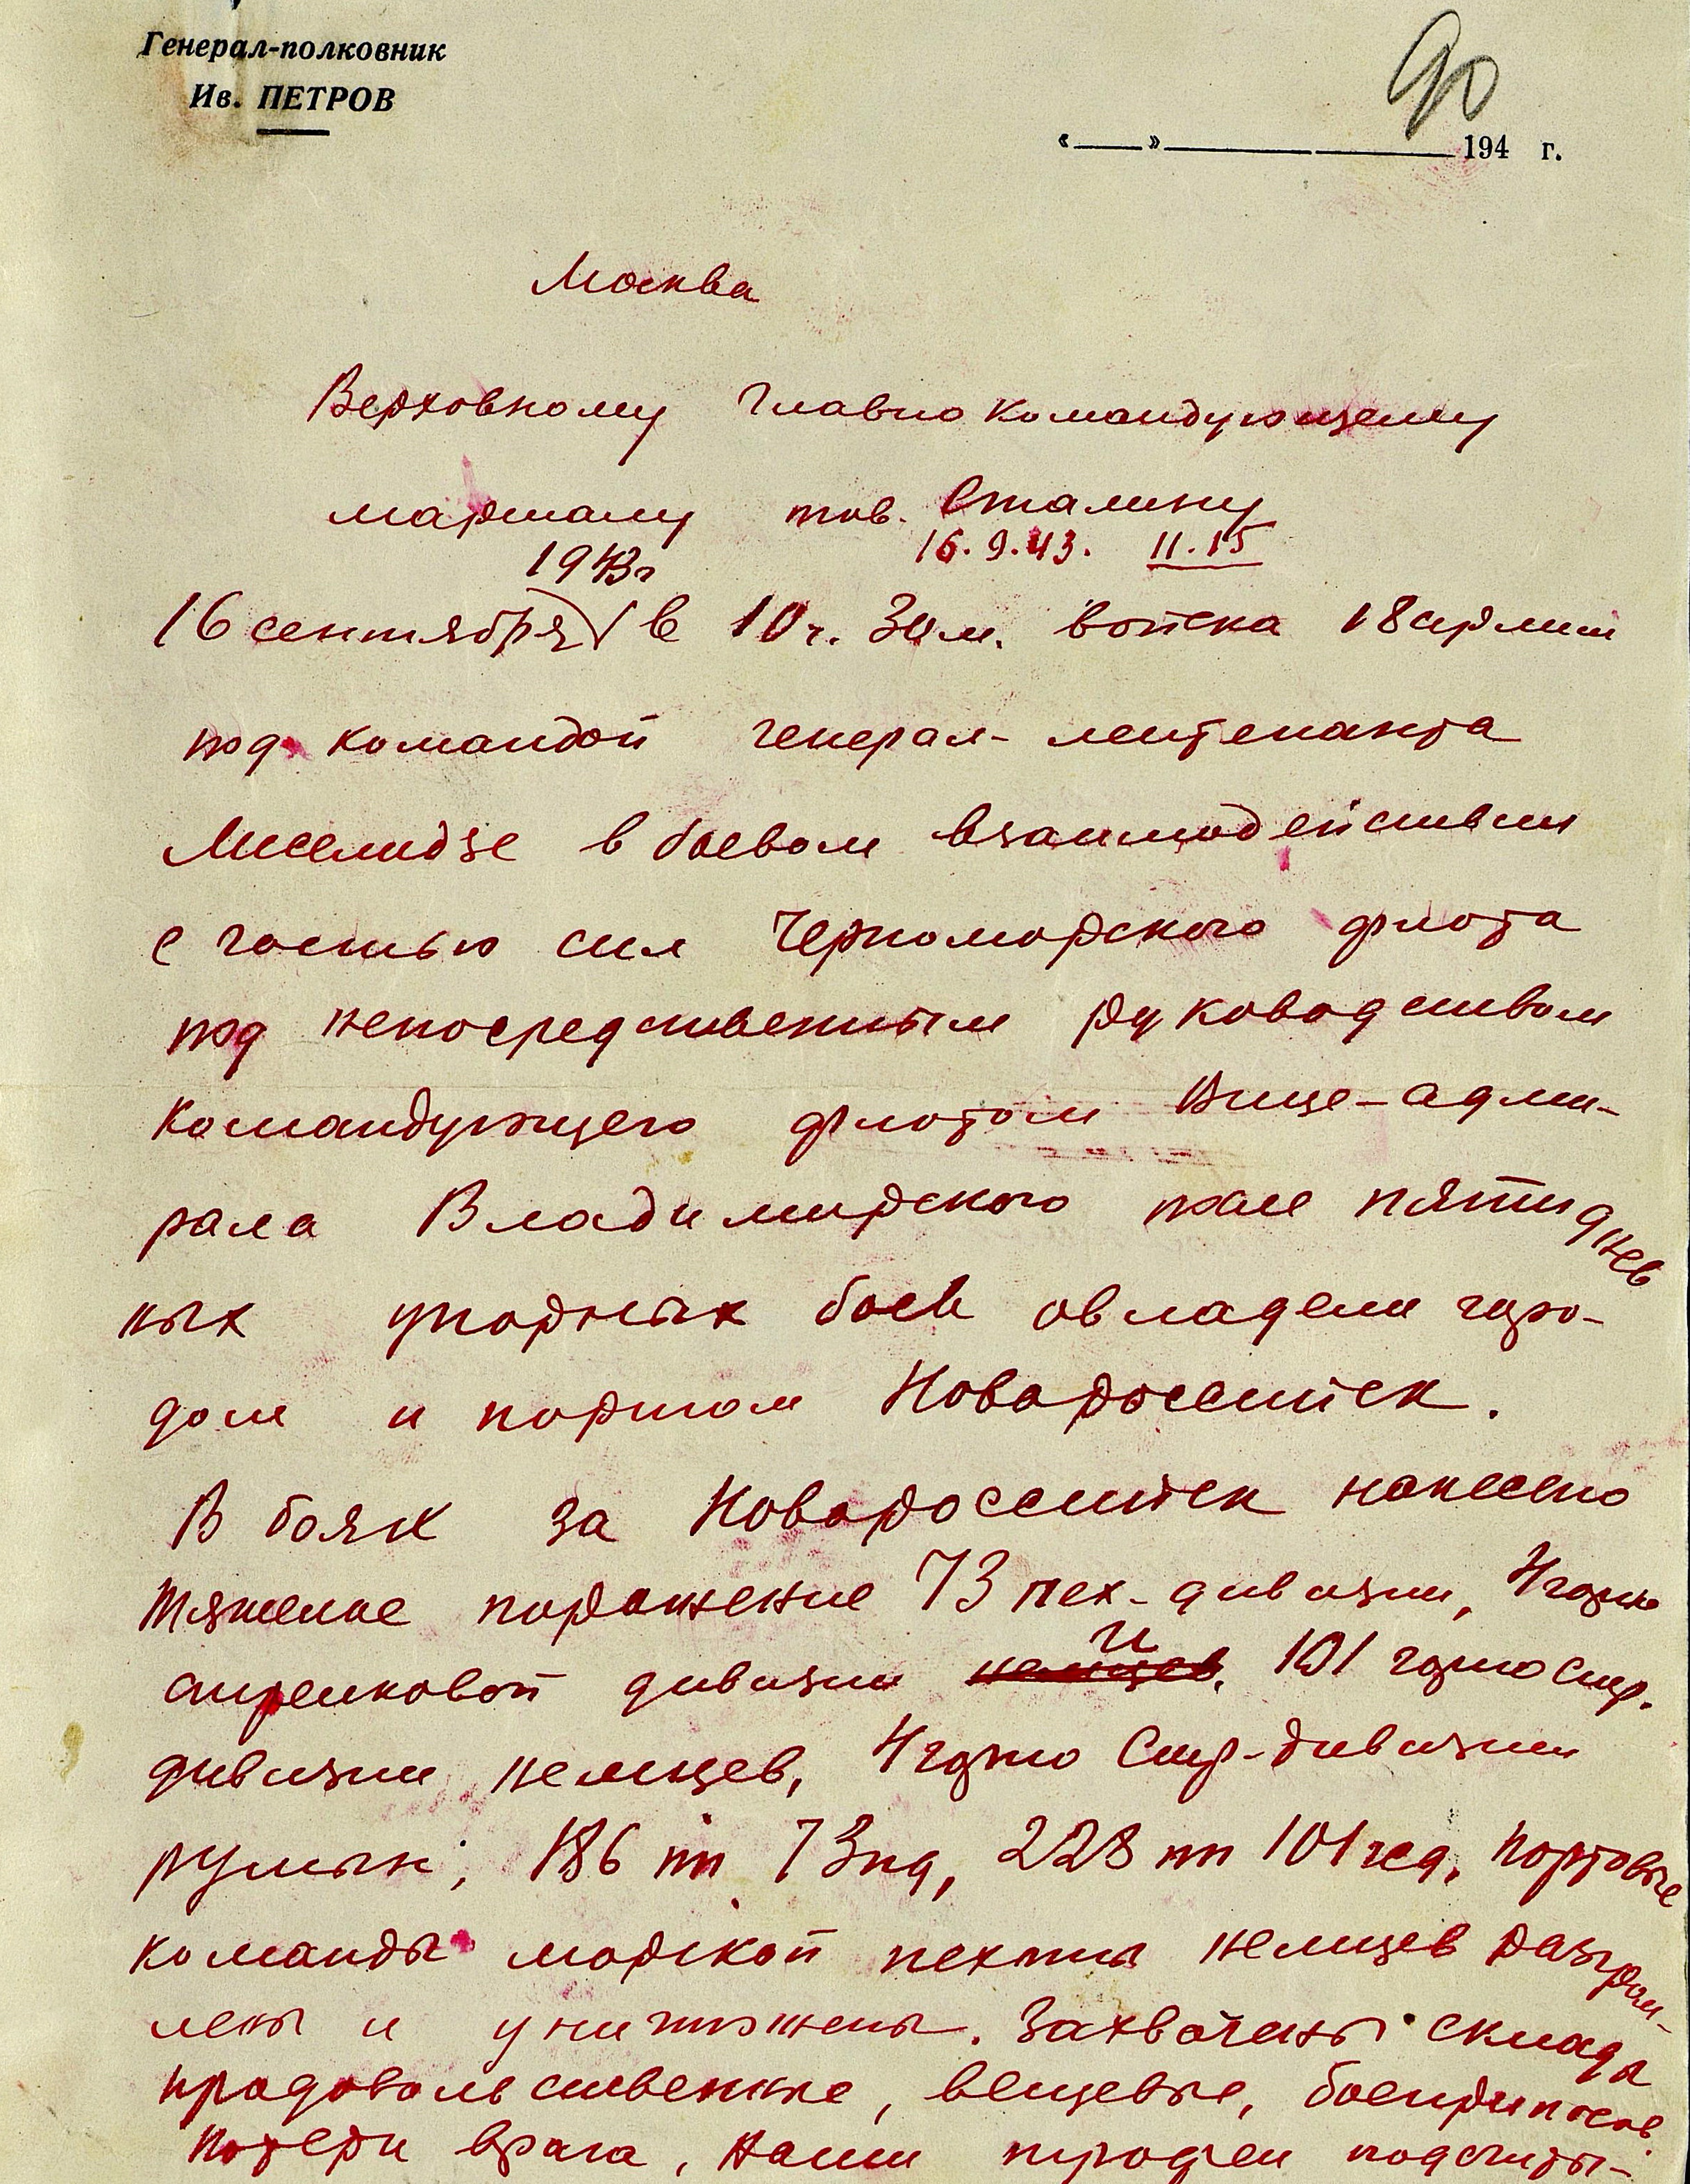 Генерал-полковник
Ив. ПЕТРОВ
90
«___»__________194 г.
Москва
Верховному Главно Командующему
маршалу тов. Сталину
1943г
16.9.43. 11.15
16 сентября в 10ч. 30м. войска 18 армии
под командой генерал-лейтенанта
Леселидзе в боевом взаимодействии
с частью сил Черноморского флота
под непосредственным руководством
Командующего флотом Вице-адми-
рала Владимирского после пятиднев
ных упорных боев овладели горо-
дом и портом Новороссийск.
В боях за Новороссийск нанесено
тяжелое поражение 73 пех-дивизии, 4 горно
стрелковой дивизии немцев, и 101 горно стр.
дивизии немцев, 4 горно Стр-дивизии
румын; 186 пп 73 пд, 228 пп 101 гсд, портовые
команды морской пехоты немцев разгром-
лены и уничтожены. Захвачены склады
продовольственные, вещевые, боеприпасов.
Потери врага, наши трофеи подсчиты-